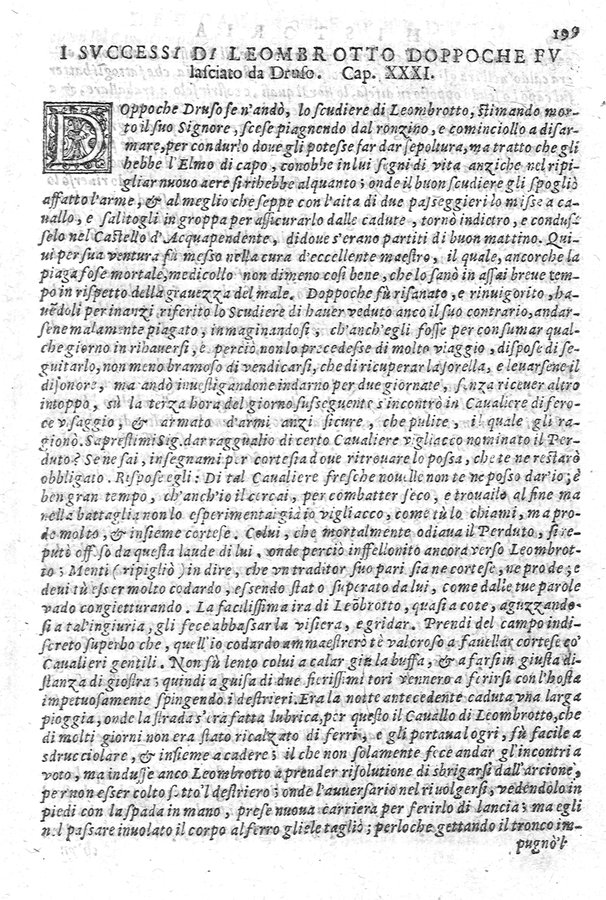 199
I SVCCESSI DI LEOMBROTTO DOPPOCHE FV
lasciato da Druso. Cap. XXXI.
DOppoche Druso se n'andò, lo scudiere di Leombrotto, stimando mor-
to il suo Signore, scese piagnendo dal ronzino, e cominciollo a disar-
mare, per condurlo doue gli potesse far dar sepoltura, ma tratto che gli
hebbe l'Elmo di capo, conobbe in lui segni di vita anziche nel ripi-
gliar nuouo aere si rihebbe alquanto; onde il buon scudiere gli spogliò
affatto l'arme, & al meglio che seppe con l'aita di due passeggieri lo misse a ca-
uallo, e salitogli in groppa per assicurarlo dalle cadute, tornò indietro, e condus-
selo nel Castello d'Acquapendente, di doue s'erano partiti di buon mattino. Qui-
ui per sua ventura fù messo nella cura d'eccellente maestro, il quale, ancorche la
piaga fose mortale, medicollo non dimeno così bene, che lo sanò in assai breue tem-
po in rispetto della grauezza del male. Doppoche fù risanato, e rinuigorito, ha-
uēdoli per innanzi riferito lo Scudiere di hauer veduto anco il suo contrario, andar-
sene malamente piagato, inmaginandosi, ch'anch'egli fosse per consumar qual-
che giorno in rihauersi, e perciò non lo precedesse di molto viaggio, dispose di se-
guitarlo, non meno bramoso di vendicarsi, che di ricuperar la sorella, e leuarsene il
disonore, ma andò inuestigandone indarno per due giornate, senza riceuer altro
intoppo, sù la terza hora del giorno susseguente s'incontrò in Caualiere di fero-
ce visaggio, & armato d'armi anzi sicure, che pulite, il quale gli ra-
gionò. Saprestimi Sig. dar ragguaglio di certo Caualiere vigliacco nominato il Per-
duto? Se ne sai, insegnami per cortesia doue ritrouare lo possa, che te ne restarò
obbligato. Rispose egli: Di tal Caualiere fresche nouelle non te ne posso dar io; è
ben gran tempo, ch'anch'io il cercai, per combatter seco, e trouailo al fine ma
nella battaglia non lo esperimentai già io vigliacco, come tù lo chiami, ma pro-
de molto, & insieme cortese. Colui, che mortalmente odiaua il Perduto, si re-
putò offeso da questa laude di lui. onde perciò inffellonito ancora verso Leombrot-
to; Menti (ripigliò) in dire, che vn traditor suo pari sia ne cortese, ne prode; e
deui tù esser molto codardo, essendo stato superato da lui, come dalle tue parole
vado congietturando. La facilissima ira di Leōbrotto, quasi a cote, aguzzando-
si a tal'ingiuria, gli fece abbassar la visiera, e gridar. Prendi del campo indi-
screto superbo che, quell'io codardo ammaestrerò tè valoroso a fauellar cortese cō'
Caualieri gentili. Non fù lento colui a calar giu la buffa, & a farsi in giusta di-
stanza di giostra; quindi a guisa di due fierissimi tori vennero a ferirsi con l'hasta
impetuosamente spingendo i destrieri. Era la notte antecedente caduta vna larga
pioggia, onde la strada s'era fatta lubrica, per questo il Cauallo di Leombrotto, che
di molti giorni non era stato ricalzato di ferri, e gli portaua logri, fù facile a
sdrucciolare, & insieme a cadere; il che non solamente fece andar gl'incontri a
voto, ma indusse anco Leombrotto a prender risolutione di sbrigarsi dall'arcione,
per non esser colto sotto'l destriero; onde l'auuersario nel riuolgersi, vedēdolo in
piedi con la spada in mano, prese nuoua carriera per ferirlo di lancia; ma egli
nel passare inuolato il corpo al ferro gliele tagliò; perloche gettando il tronco im-
pugnò'l